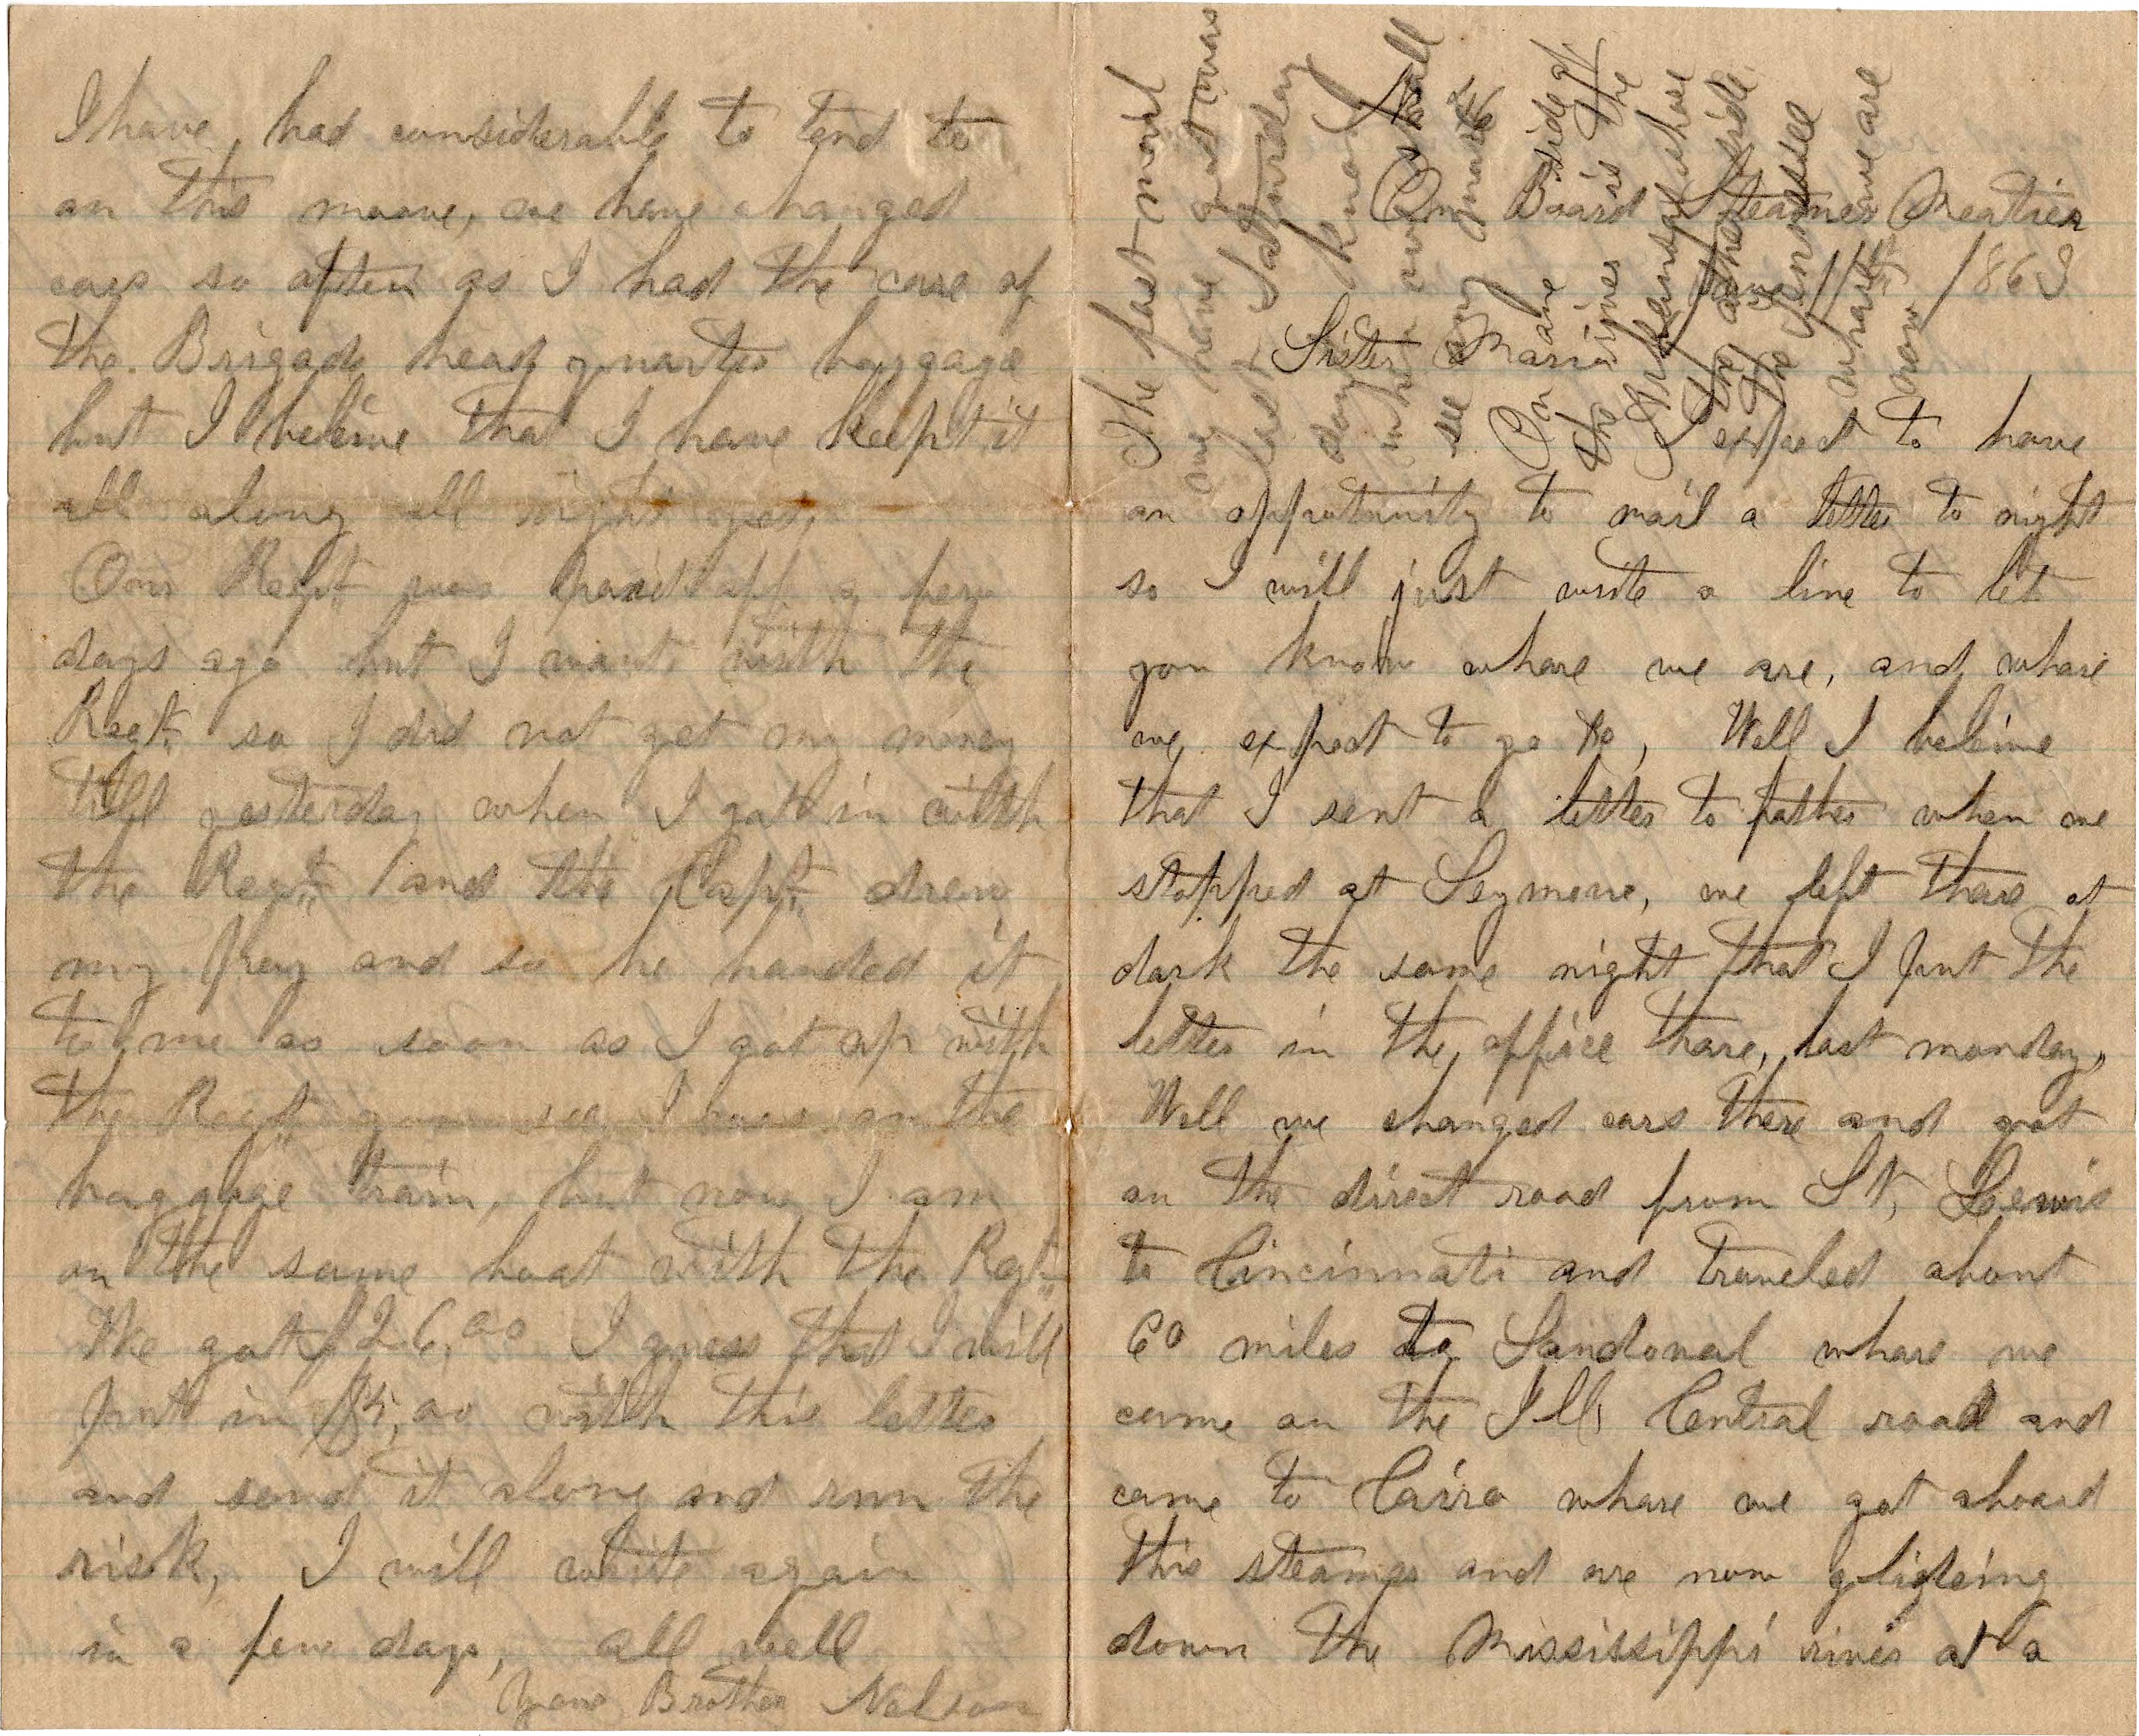 No 46
On Board Steamer Meatier
June 11th 1863
Sister Maria
I expect to have
an oppratunity to mail a letter to night
so I will just write a line to let
you know whare we are, and whare
we expect to go to, Well I beleive
that I sent a letter to father when we
stopped at Seymore, we left thare at
dark the same night that I put the
letter in the office thare, last monday,
Well we changed cars there and got
on the direct road from St, Lewis
to Cincinnati and traveled about
60 miles to Sandoval whare we
came on the Ill, Central road and
came to Cairo whare we got aboard
this steamer and are now glideing
down the Mississippi river at a
I have had considerable to tend to
on this moove, we have changed
cars so often as I had the care of
the Brigade head quarters baggage
but I beleive that I have keept it
all along all right yet,
Our Regt. was paid off a few
days ago but I want with the
Regt. so I did not get my money
till yesterday when I got in with
the Regt. and the Capt. drew
my pay and so he handed it
to me as soon as I got up with
the Regt. you see I was on the
baggage train, but now I am
on the same boat with the Regt.
We got $26,00 I guess that I will
put in $5,00 with this letter
and send it along and run the
risk, I will write again
in a few days, all well
Your Brother Nelson
The last mail
we have got was
last Saturday
I know
when we shall
see any more
On
side of
the
are
river is the
Arkensas shore
the other side
the Tennessee
whare we are
now